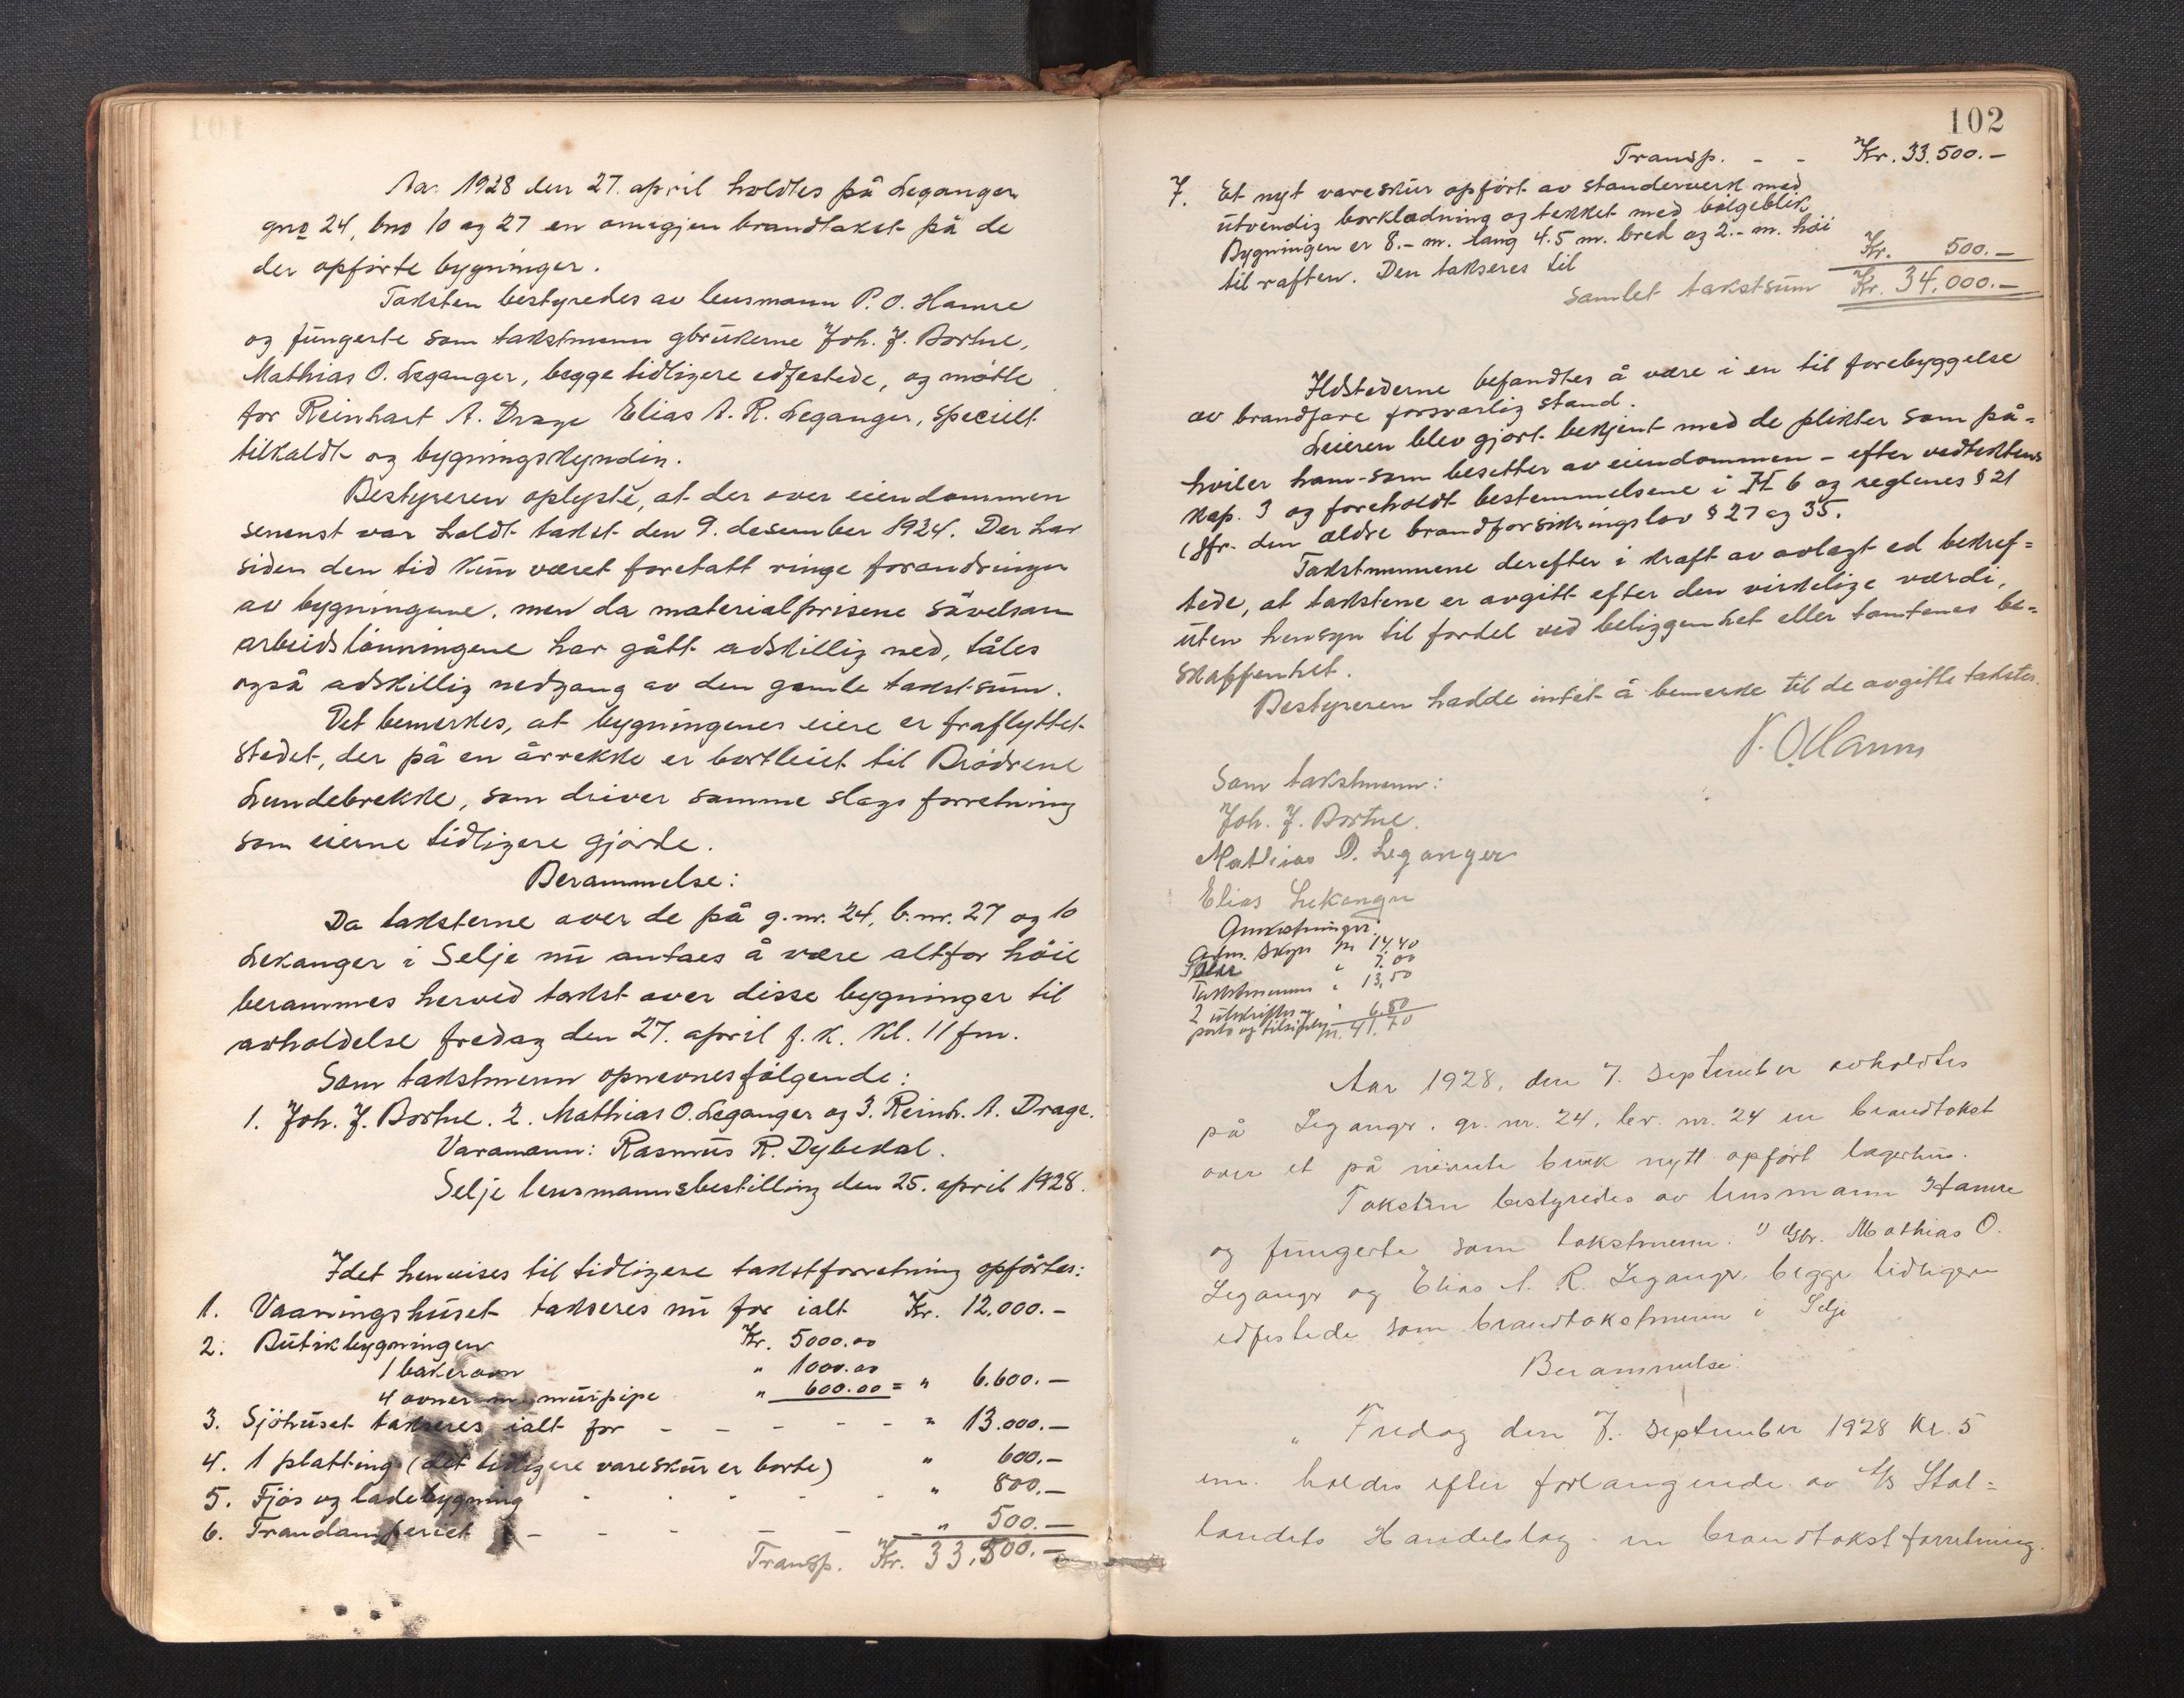 Aar 1928 den 27. april holdtes på Leganger
gno 24, bno 10 og 27 en omigjen brandtakst på de
der opførte bygninger.
Taksten bestyredes av lensmann P. O. Hamre
og fungerte som takstmenn gbrukerne Joh. J. Bortne,
Mathias O. Leganger, begge tidligere edfestede, og møtte
for Reinhart A. Drage Elias A. R. Leganger, specielt
tilkaldt og bygningskyndig.
Bestyreren oplyste, at der over eiendommen
senenst var holdt takst den 9. desember 1924. Der har
siden den tid kun været foretatt ringe forandringer
av bygningene, men da materialprisene såvelsom
arbeidslønningene har gått adskillig ned, tåles
også adskillig nedgang av den gamle takstsum.
Det bemerkes, at bygningenes eiere er fraflyttet
stedet, der på en årrekke er bortleiet til Brødrene
Lundebrekke, som driver samme slags forretning
som eierne tidligere gjorde.
Berammelse:
Da taksterne over de på g.nr. 24, b.nr. 27 og 10
Lekanger i Selje nu antaes å være altfor høie
berammes herved takst over disse bygninger til
avholdelse fredag den 27. april f. k. kl. 11 fm.
Som takstmenn opnevnes følgende:
1. Joh. J. Bortne. 2. Mathias O. Leganger og 3. Reinh. A. Drage.
Varamann: Rasmus R. Dybedal.
Selje lensmannsbestilling den 25. april 1928.
Idet henvises til tidligere takstforretning opførtes:
1. Vaaningshuset takseres nu for ialt Kr. 12.000.—
2. Butikbygningen Kr. 5000.00
1 bakerovn " 1000.00
4 ovner m. murpipe " 600.00 = " 6.600.—
3. Sjøhuset takseres ialt for - - - - - " 13.000.—
4. 1 platting (det tidligere vareskur er borte) " 600.—
5. Fjøs og ladebygning - - - - - " 800.—
6. Trandamperiet - - - - - " 500.—
Transp. Kr. 33.500.—
102
Transp. - - Kr. 33.500.—
7. Et nyt vareskur opført av standerverk med
utvendig borklædning og tekket med bølgeblik
Bygningen er 8.- m. lang 4.5 m. bred og 2.- m. høi
til raften. Den takseres til Kr. 500.—
Samlet takstsum Kr. 34.000.—
Ildstederne befandtes å være i en til forebyggelse
av brandfare forsvarlig stand.
Leieren blev gjort bekjent med de plikter som på=
hviler ham - som besitter av eiendommen - efter vedtektens
kap. 3 og foreholdt bestemmelsene i 6 og reglenes § 21
(Jfr. den ældre brandforsikringslov § 27 og 35.
Takstmennene derefter i kraft av avlagt ed bekref=
tede, at takstene er avgitt efter den virkelige værdi,
uten hensyn til fordel ved beliggenhet eller tomtenes be=
skaffenhet.
Bestyreren hadde intet å bemerke til de avgitte takster.
P. O. Hamre
Som takstmenn:
Joh. J. Bortne.
Mathias O. Leganger
Elias Lekanger
Omkostninger:
Adm. skyss kr 14.40
" 7.00
Takstmennene " 13,50
2 utskrifter og " 6.80
porto og kr. 41.70
Aar 1928, den 7. september avholdtes
på Leganger, gr. nr. 24, br. nr. 24 en brandtakst
over et på nevnte bruk nytt opført lagerhus.
Taksten bestyredes av lensmann Hamre
og fungerte som takstmenn: Gbr. Mathias O.
Leganger og Elias A. R. Leganger, begge tidligere
edfestede som brandtakstmenn i Selje
Berammelse:
" Fredag den 7. september 1928 kl. 5
em. holdes efter forlangende av A/S Stat=
landets Handelslag en brandtakstforretning